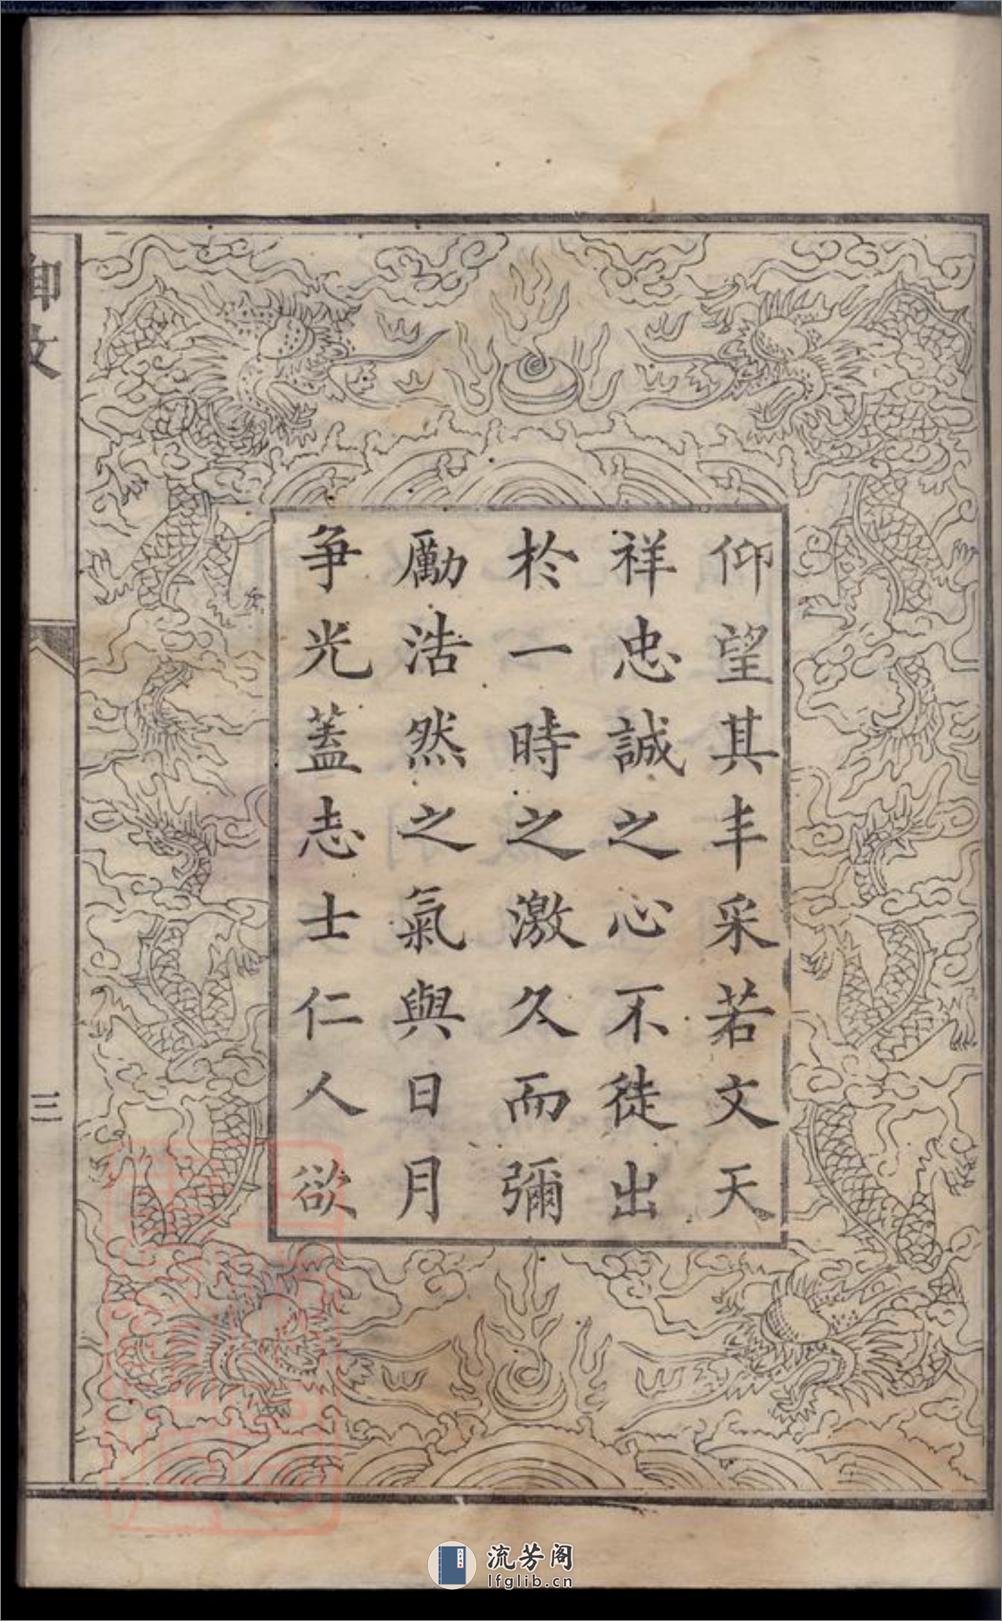 仰望其丰采若文天
祥忠誠之心不徒出
於一時之激久而彌
勵浩然之氣與日月
争光蓋志士仁人欲
御文
三
流芳阁
lfglib.cn